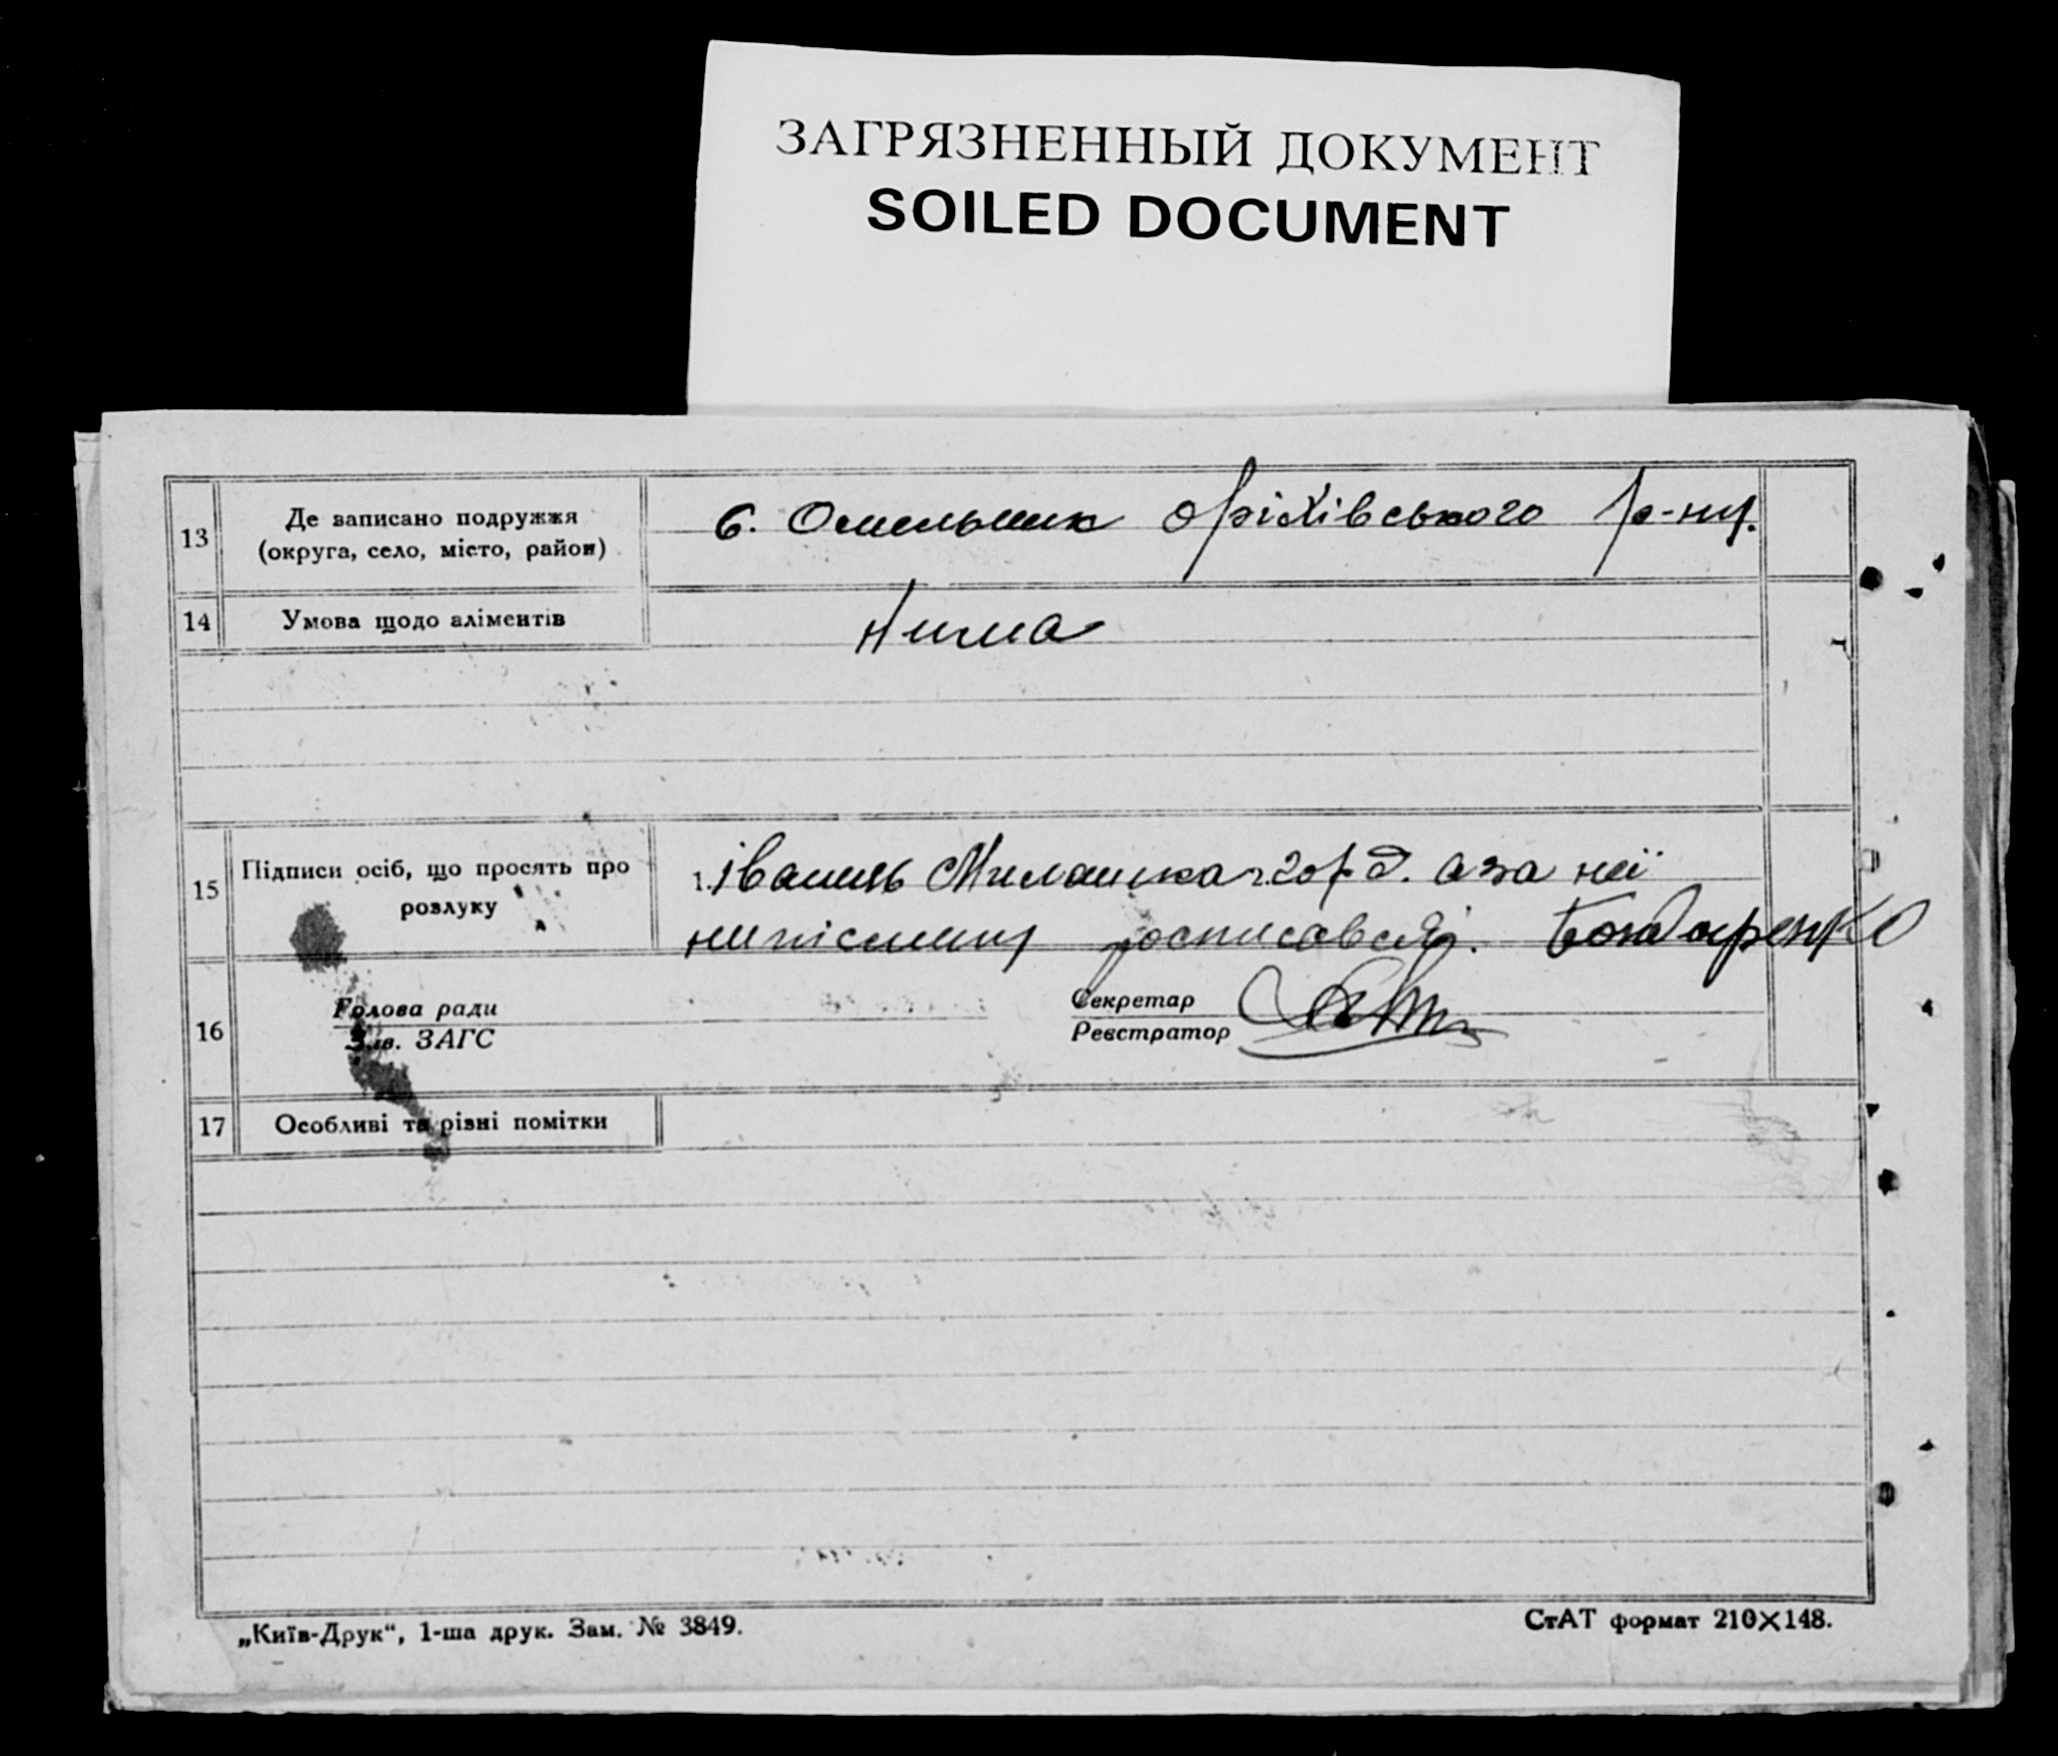 ЗАГРЯЗНЕННЫЙ ДОКУМЕНТ
SOILED DOCUMENT
13
Де записано подружжя
(округа, село, місто, район)
с. Омельник Оріхівського р-ну.
14
Умова щодо аліментів
Нима
15
Підписи осіб, що просять про
розлуку
1. а за неї
росписався. Бондаренко
16
Голова ради
Зав. ЗАГС
Секретар
Реєстратор
17
Особливі та різні помітки
„Київ-Друк“, 1-ша друк. Зам. № 3849.
СтАТ формат 210×148.